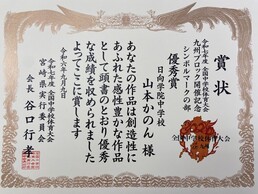 賞状
令和七年度 全国中学校体育大会
九州ブロック開催記念
シンボルマークの部
優秀賞
日向学院中学校
山本かのん 様
あなたの作品は創造性に
あふれた感性豊かな作品
として頭書のとおり優秀
な成績を収められました
よってここに賞します
令和六年九月九日
令和七年度 全国中学校体育大会
宮崎県実行委員会
会長 谷口行孝
全国中学校体育大会